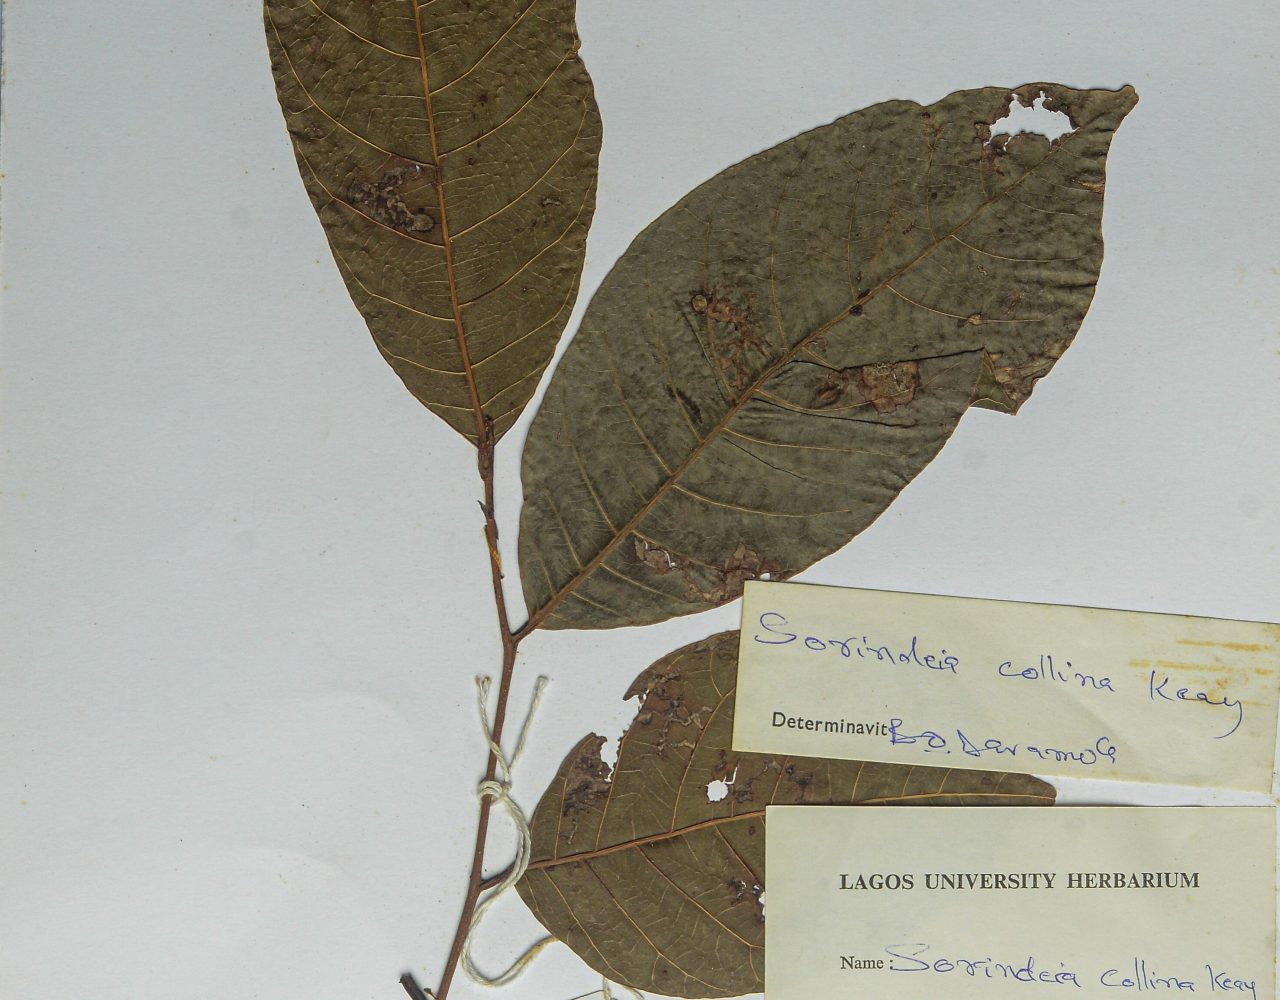 Sorindeia collina Keay
Determinavit B.O. Daramola
LAGOS UNIVERSITY HERBARIUM
Name: Sorindeia collina Keay